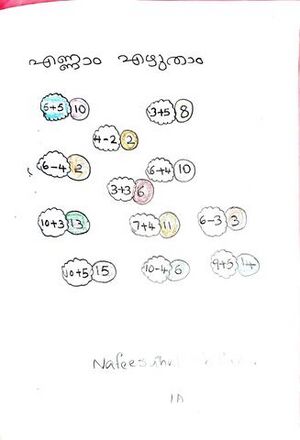 എണ്ണാം എഴുതാം
5+5 10 3+5 8
4-2 2
6-4 2 6+4 10
3+3 6
10+3 13 7+4 11 6-3 3
10+5 15 10-4 6 9+5 14
1A